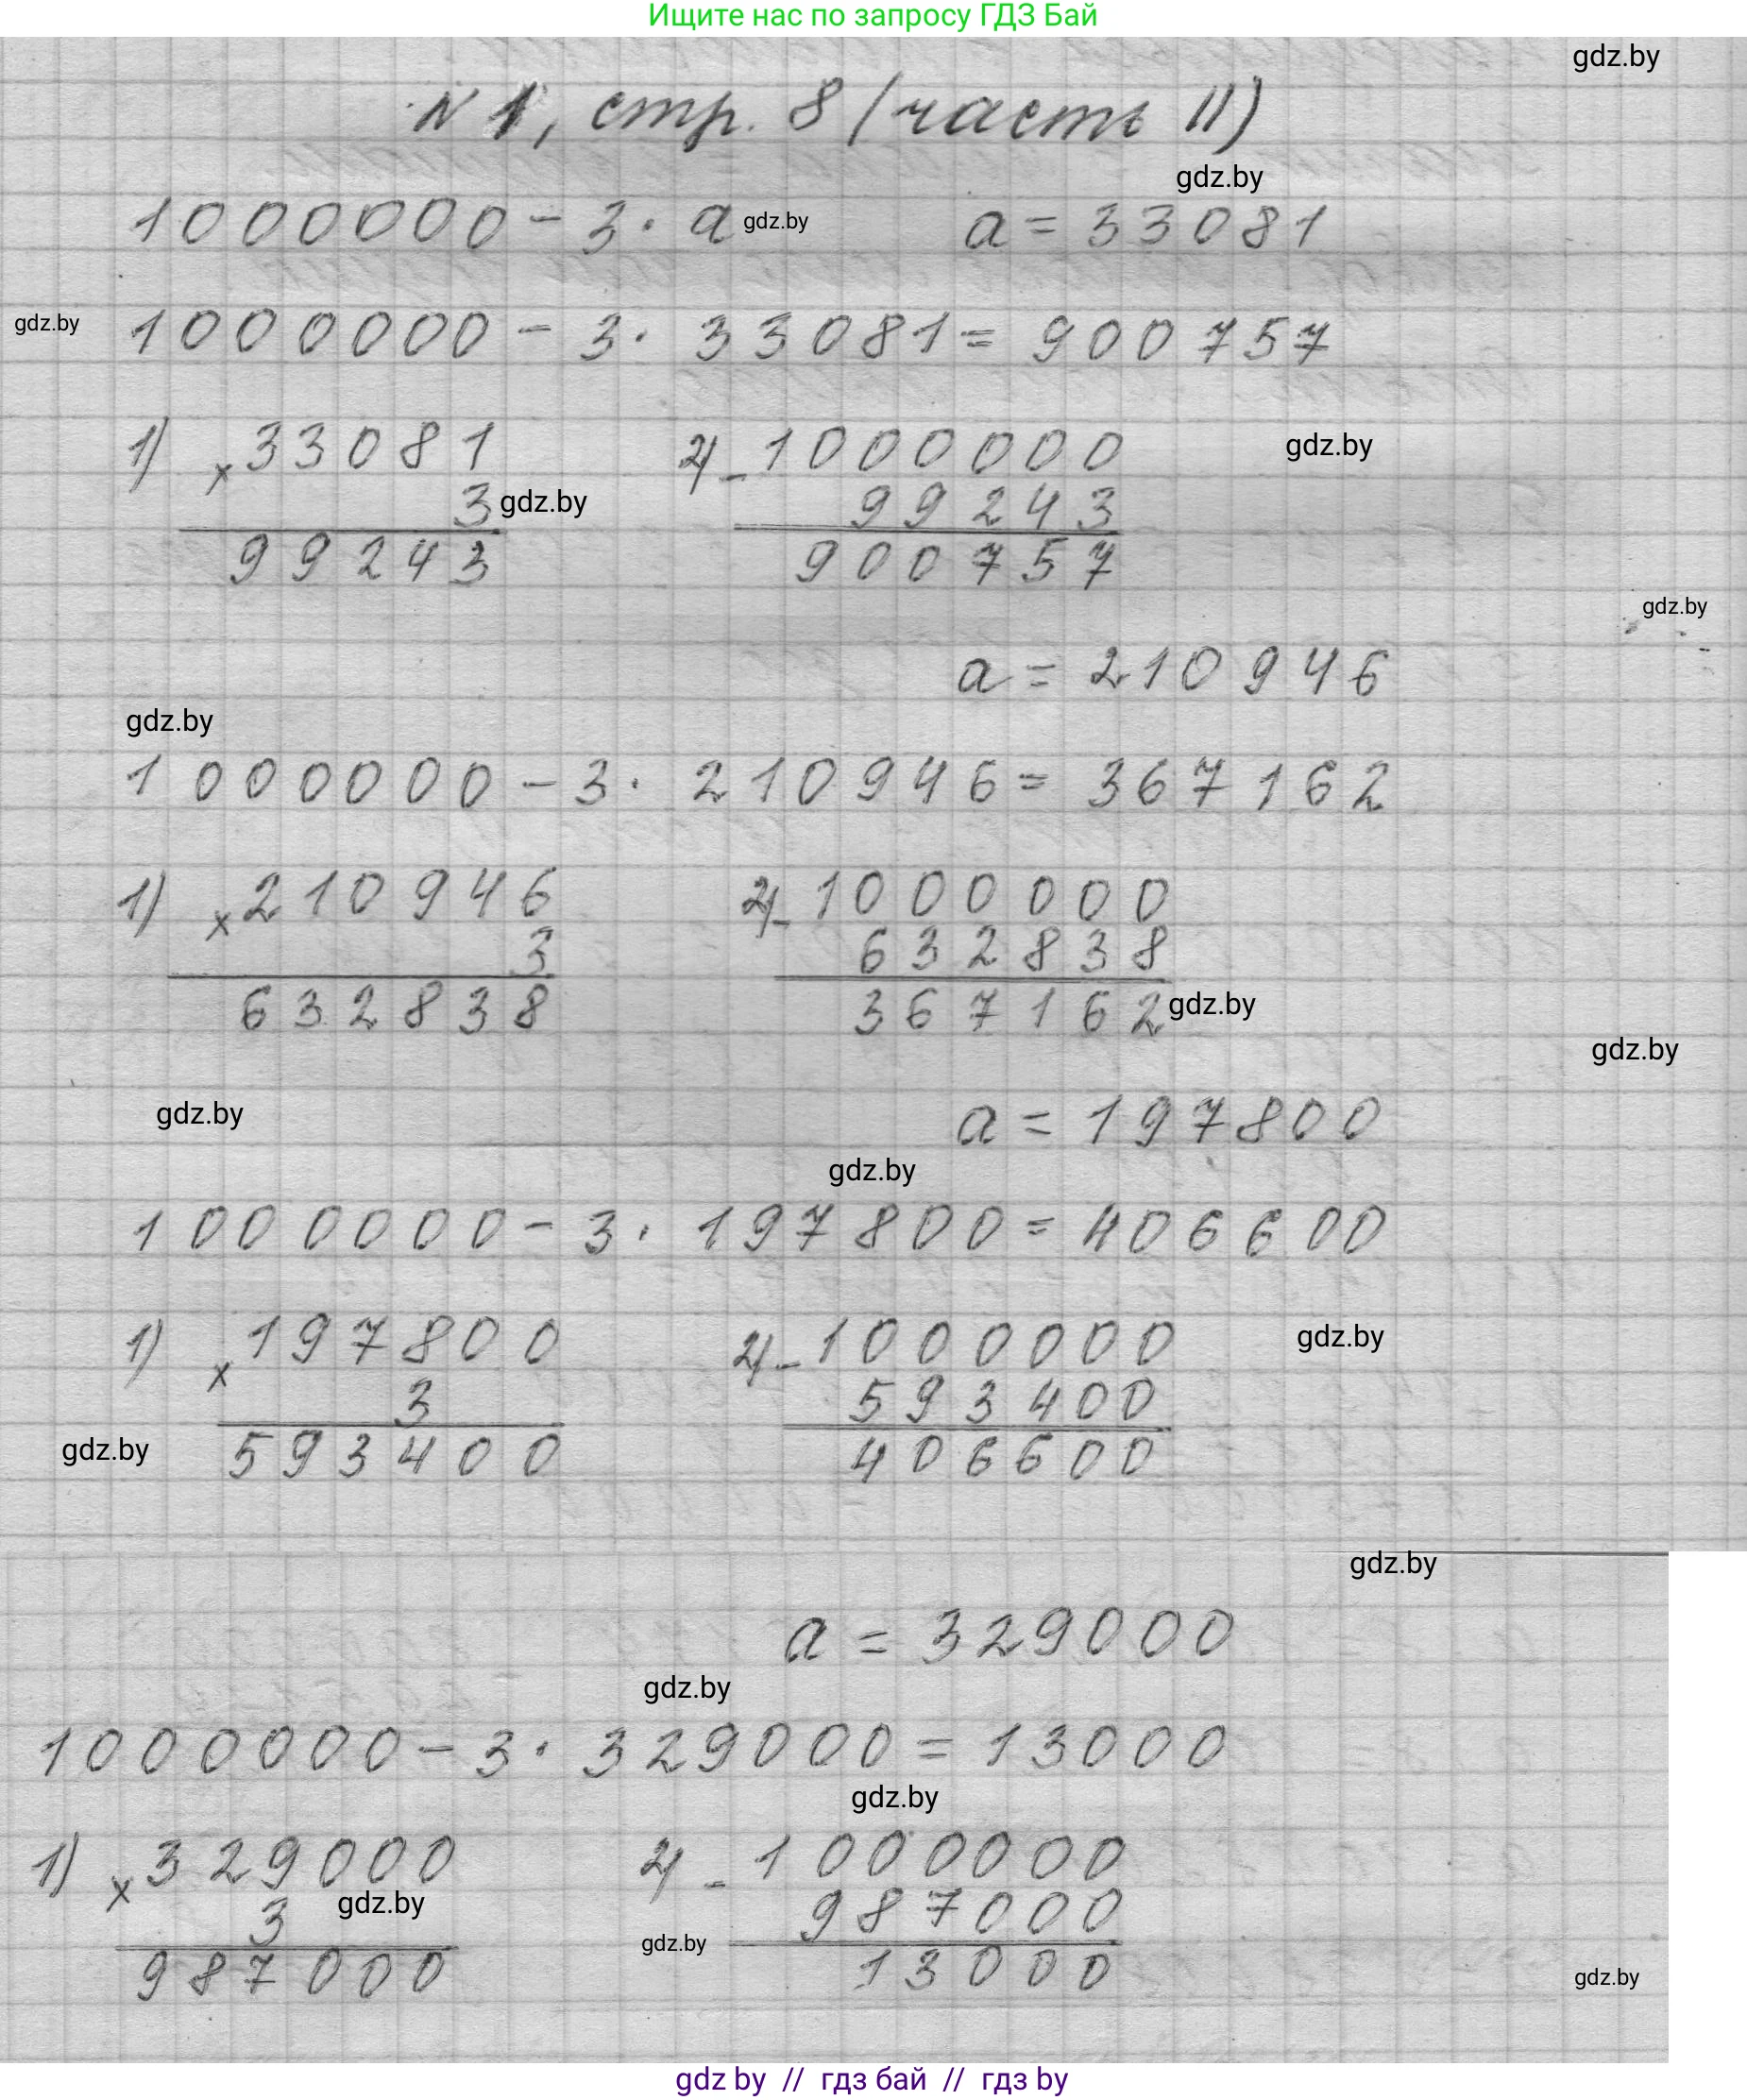 Ищите нас по запросу ГДЗ Бай
gdz.by
N 1, стр. 8 (часть II)
gdz.by
1000000 - 3 · a gdz.by a = 33081
gdz.by 1000000 - 3 · 33081 = 900757
1) × 33081 2) - 1000000 gdz.by
3 gdz.by 99243
99243 900757
gdz.by
a = 210946
gdz.by
1000000 - 3 · 210946 = 367162
1) × 210946 2) - 1000000
3 632838
632838 367162 gdz.by
gdz.by
gdz.by a = 197800
gdz.by
1000000 - 3 · 197800 = 406600
1) × 197800 2) - 1000000 gdz.by
3 593400
gdz.by 593400 406600
gdz.by
a = 329000
gdz.by
1000000 - 3 · 329000 = 13000
gdz.by
1) × 329000 2) - 1000000
3 gdz.by 987000
gdz.by
987000 13000 gdz.by
gdz by // гдз бай // гдз by